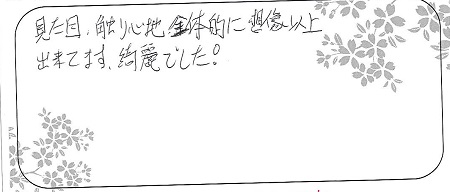 見た目、触り心地 全体的に想像以上
出来てます、綺麗でした!